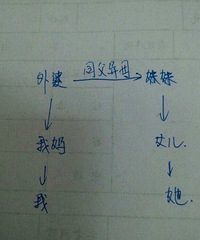 外婆 同父异母 妹妹
我妈 女儿.
我 她.